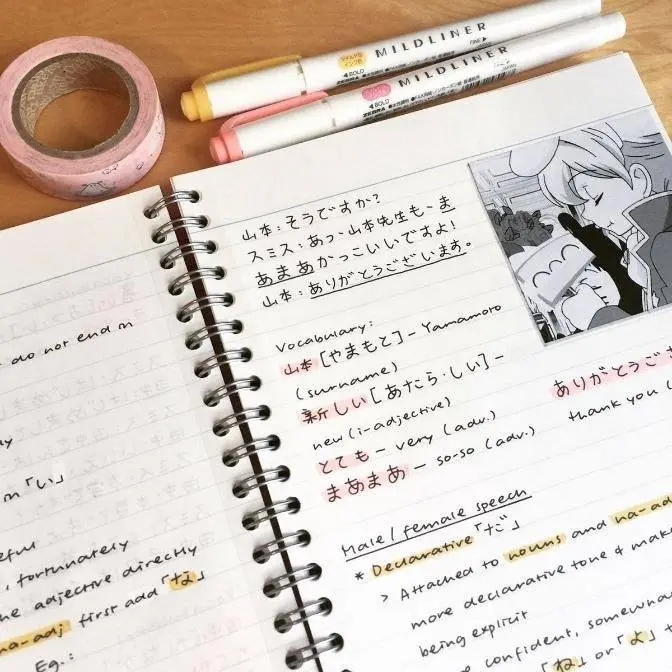 MILDLINER
BOLD
FINE
ZEBRA
JAPAN
MILDLINER
BOLD
ZEBRA
do not end in
「い」
, fortunately
the adjective directly
na-adj first add「な」
Eg.:
山本:そうですか?
スミス:あっ、山本先生も、ま
あまあかっこいいですよ!
山本:ありがとうございます。
Vocabulary:
山本[やまもと]- Yamamoto
(surname)
新しい[あたら・しい]-
new (i-adjective)
とても - very (adv.)
まあまあ - so-so (adv.)
ありがとうご
thank you
Male/female speech
* Declarative「だ」
> Attached to nouns and na-ad
more declarative tone &
being explicit
confident, somewha
「ね」or「よ」